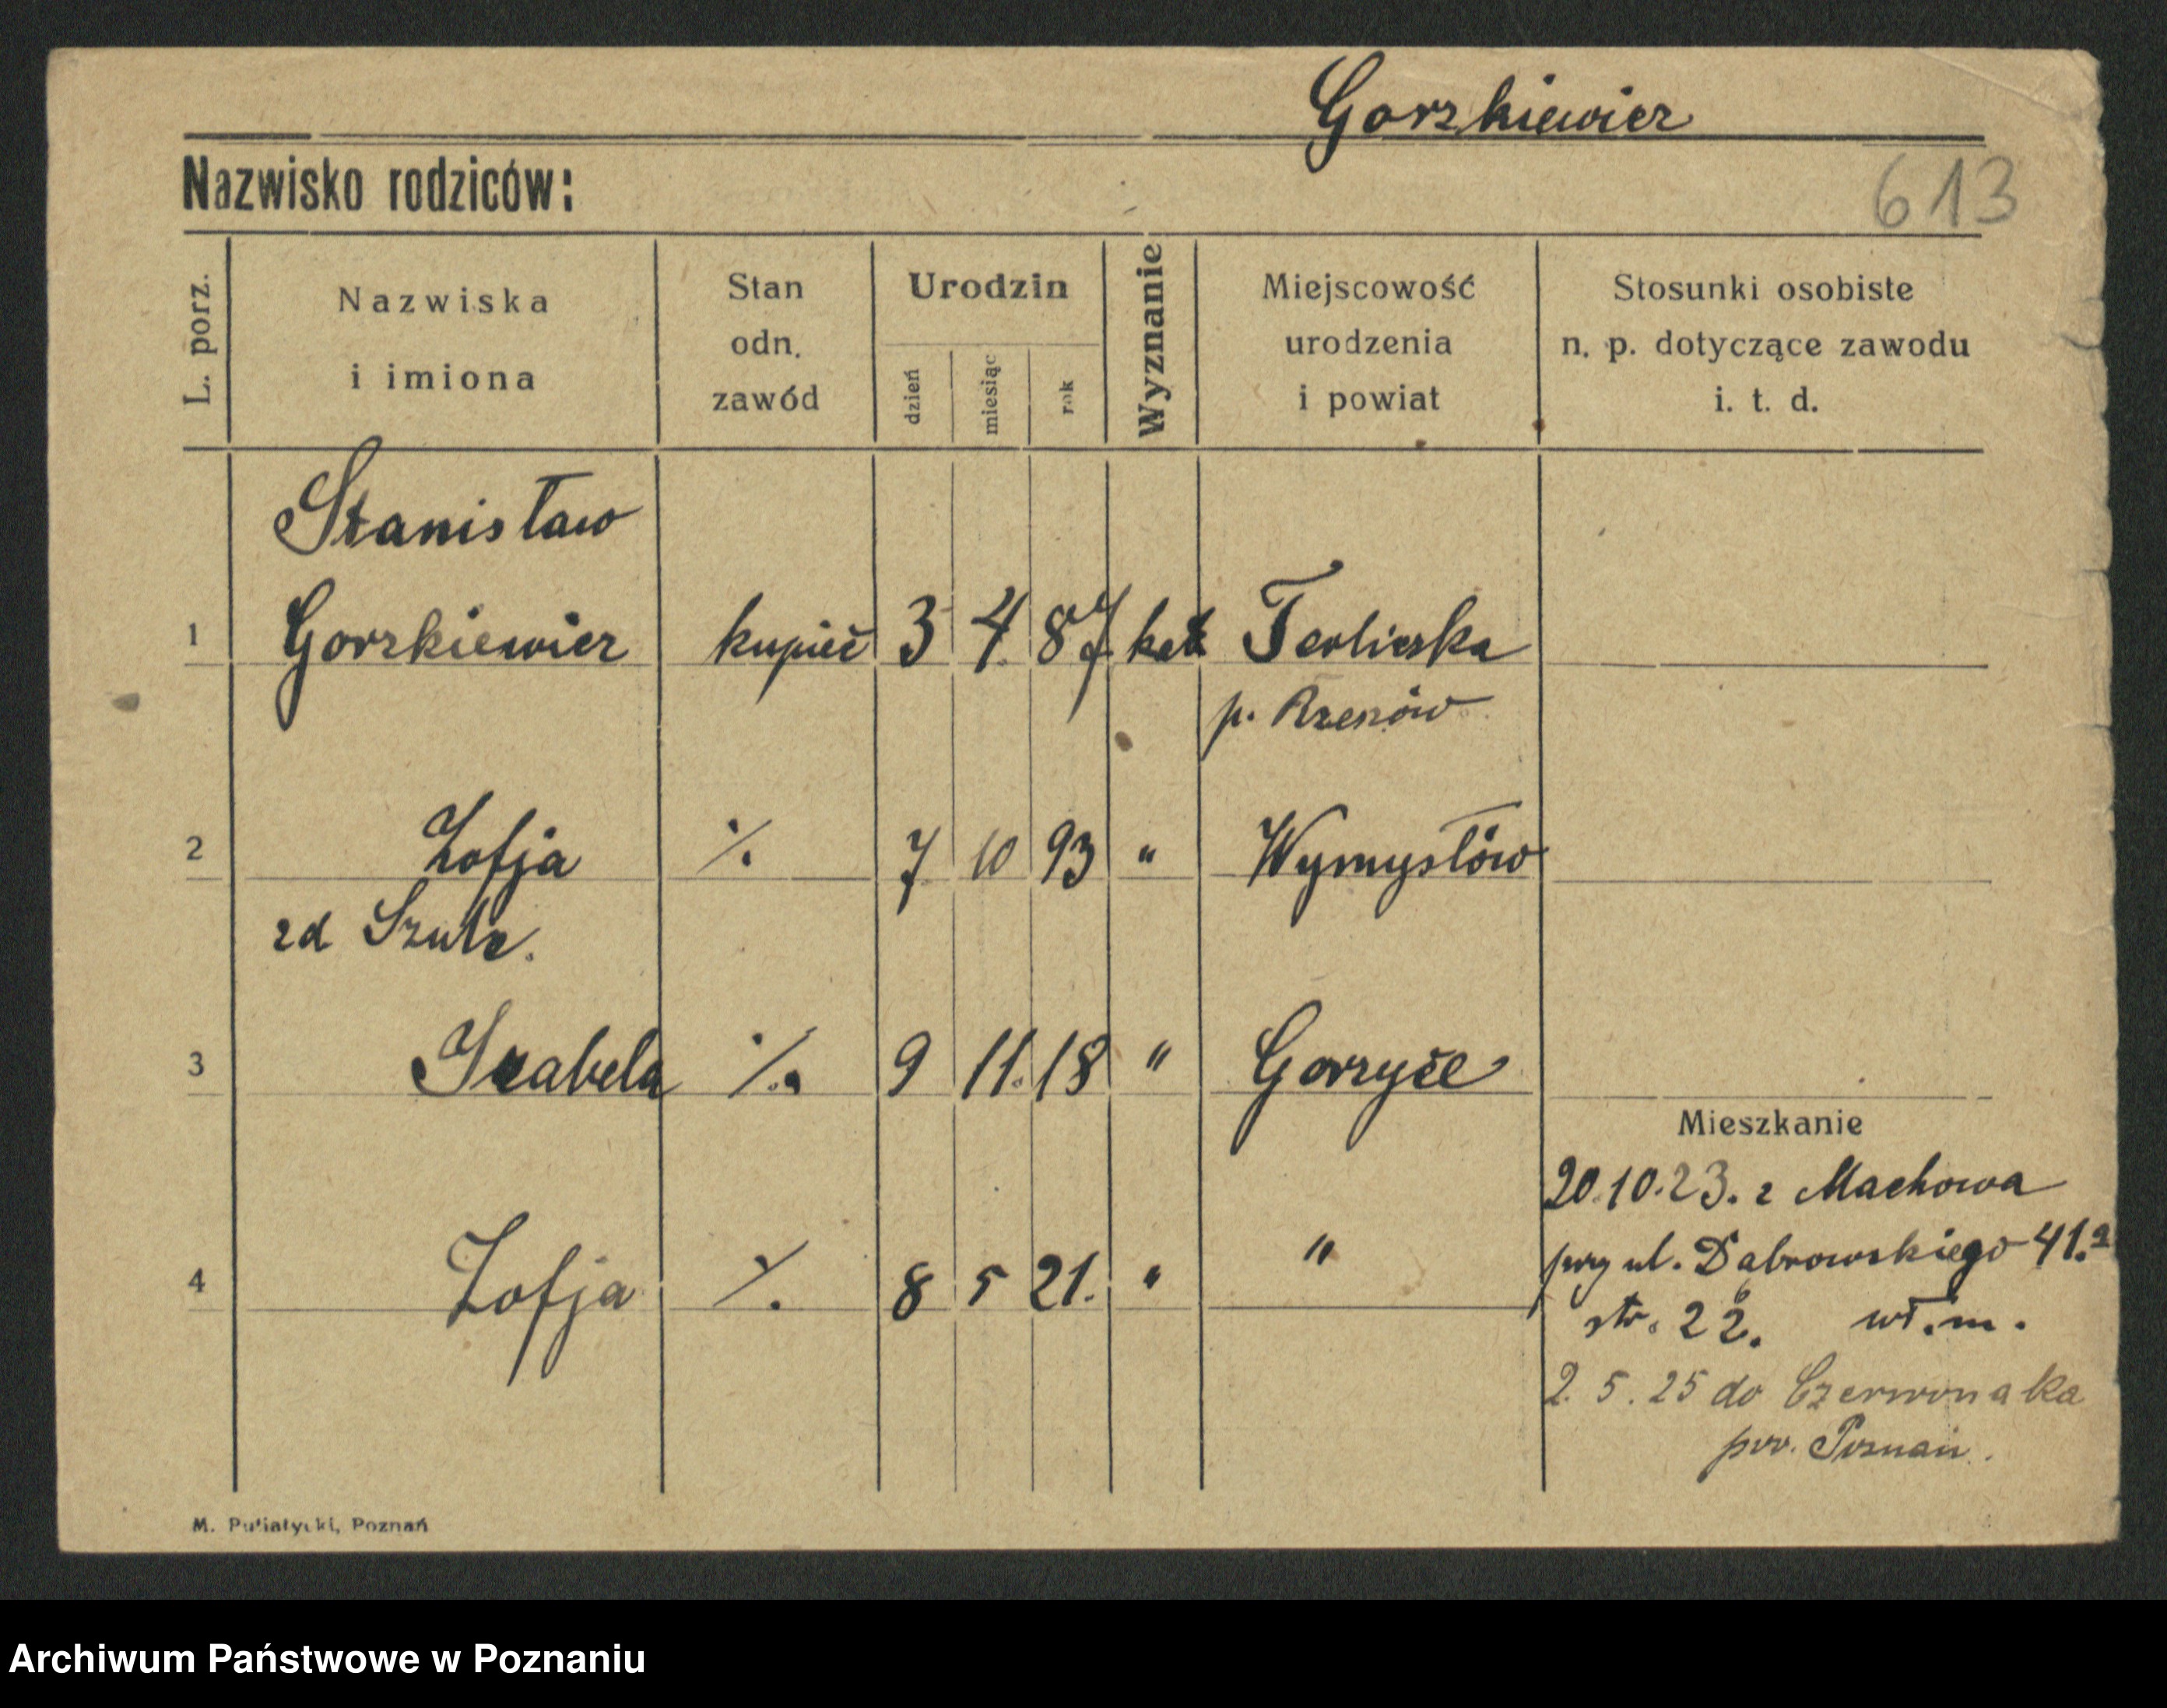 Gorzkiewicz
Nazwisko rodziców:
613
L. porz.
Nazwiska
i imiona
Stan
odn.
zawód
Urodzin
dzień
miesiąc
rok
Wyznanie
Miejscowość
urodzenia
i powiat
Stosunki osobiste
n. p. dotyczące zawodu
i. t. d.
Stanisław
1 Gorzkiewicz kupiec 3 4. 87 kat
p.
2 Zofja ./. 7 10 93 " Wymysłów
zd Szulz.
3 Izabela ./. 9 11. 18 " Gorzyce
Mieszkanie
20.10.23. z Machowa
przy ul. Dąbrowskiego 41.a
4 Zofja ./. 8 5 21. " "
str. 22. wł. m.
2. 5. 25 do Czerwonaka
pow. Poznań.
M. Putiatycki, Poznań
Archiwum Państwowe w Poznaniu